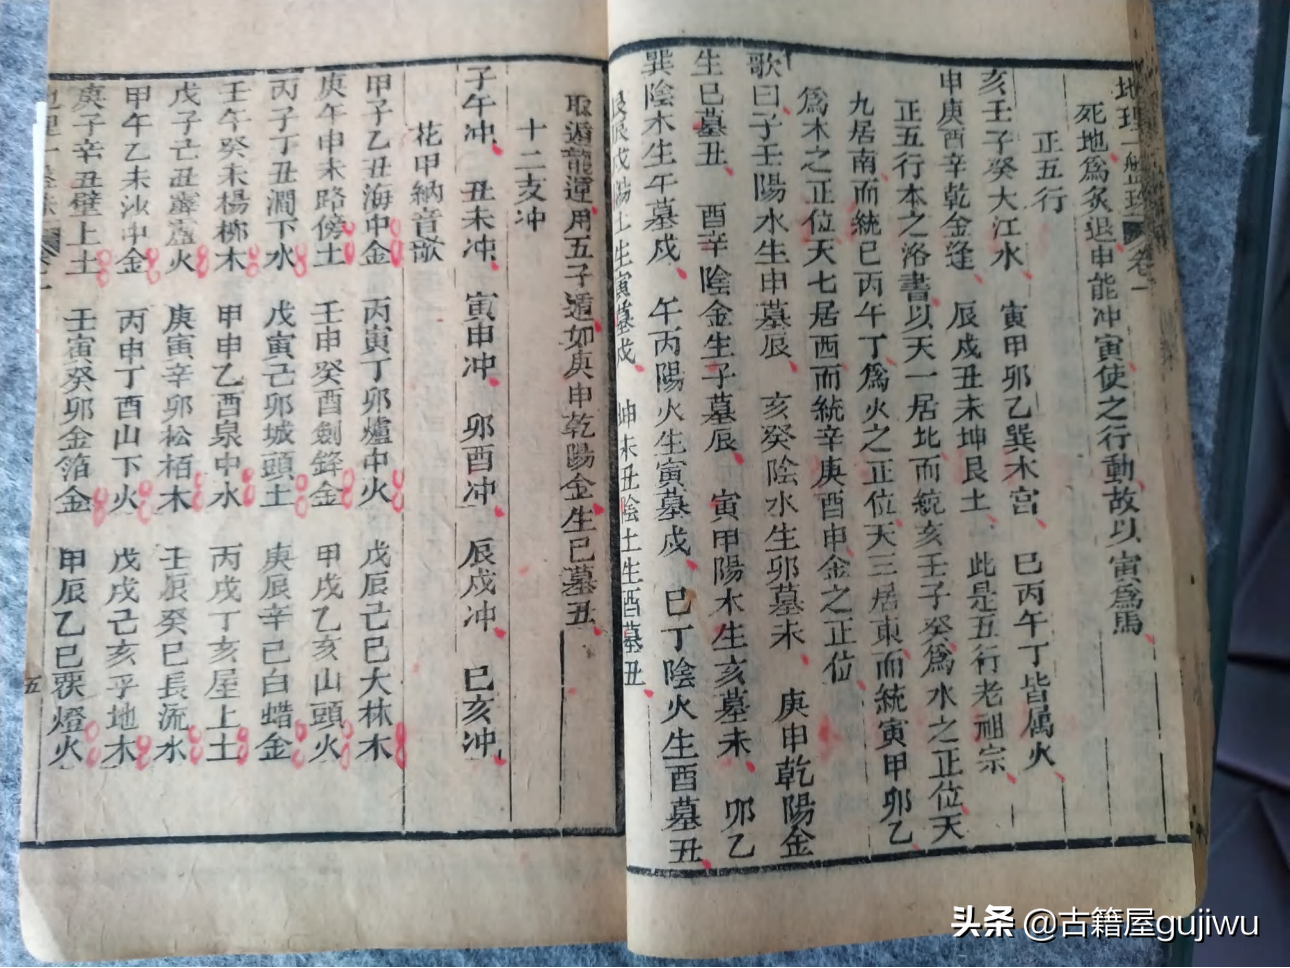 死地爲炙退申能冲寅使之行動故以寅爲馬
正五行
亥壬子癸大江水 寅甲卯乙巽木宫 巳丙午丁皆属火
申庚酉辛乾金逢 辰戍丑未坤艮土 此是五行老祖宗
正五行本之洛書以天一居北而統亥壬子癸爲水之正位天
九居南而統巳丙午丁爲火之正位天三居東而統寅甲卯乙
爲木之正位天七居西而統辛庚酉申金之正位
歌曰子壬陽水生申墓辰 亥癸陰水生卯墓未 庚申乾陽金
生巳墓丑 酉辛陰金生子墓辰 寅甲陽木生亥墓未 卯乙
巽陰木生午墓戍 午丙陽火生寅墓戍 巳丁陰火生酉墓丑
艮辰戍陽土生寅墓戍 坤未丑陰土生酉墓丑
取遁龍運用五子遁如庚申乾陽金生巳墓丑
十二支冲
子午冲 丑未冲 寅申冲 卯酉冲 辰戍冲 巳亥冲
花甲納音歌
甲子乙丑海中金 丙寅丁卯爐中火 戊辰己巳大林木
庚午申未路傍土 壬申癸酉劍鋒金 甲戍乙亥山頭火
丙子丁丑澗下水 戊寅己卯城頭土 庚辰辛巳白蜡金
壬午癸未楊柳木 甲申乙酉泉中水 丙戍丁亥屋上土
戊子己丑霹靂火 庚寅辛卯松栢木 壬辰癸巳長流水
甲午乙未沙中金 丙申丁酉山下火 戊戍己亥平地木
庚子辛丑壁上土 壬寅癸卯金箔金 甲辰乙巳覆燈火
五
头条 @古籍屋gujiwu